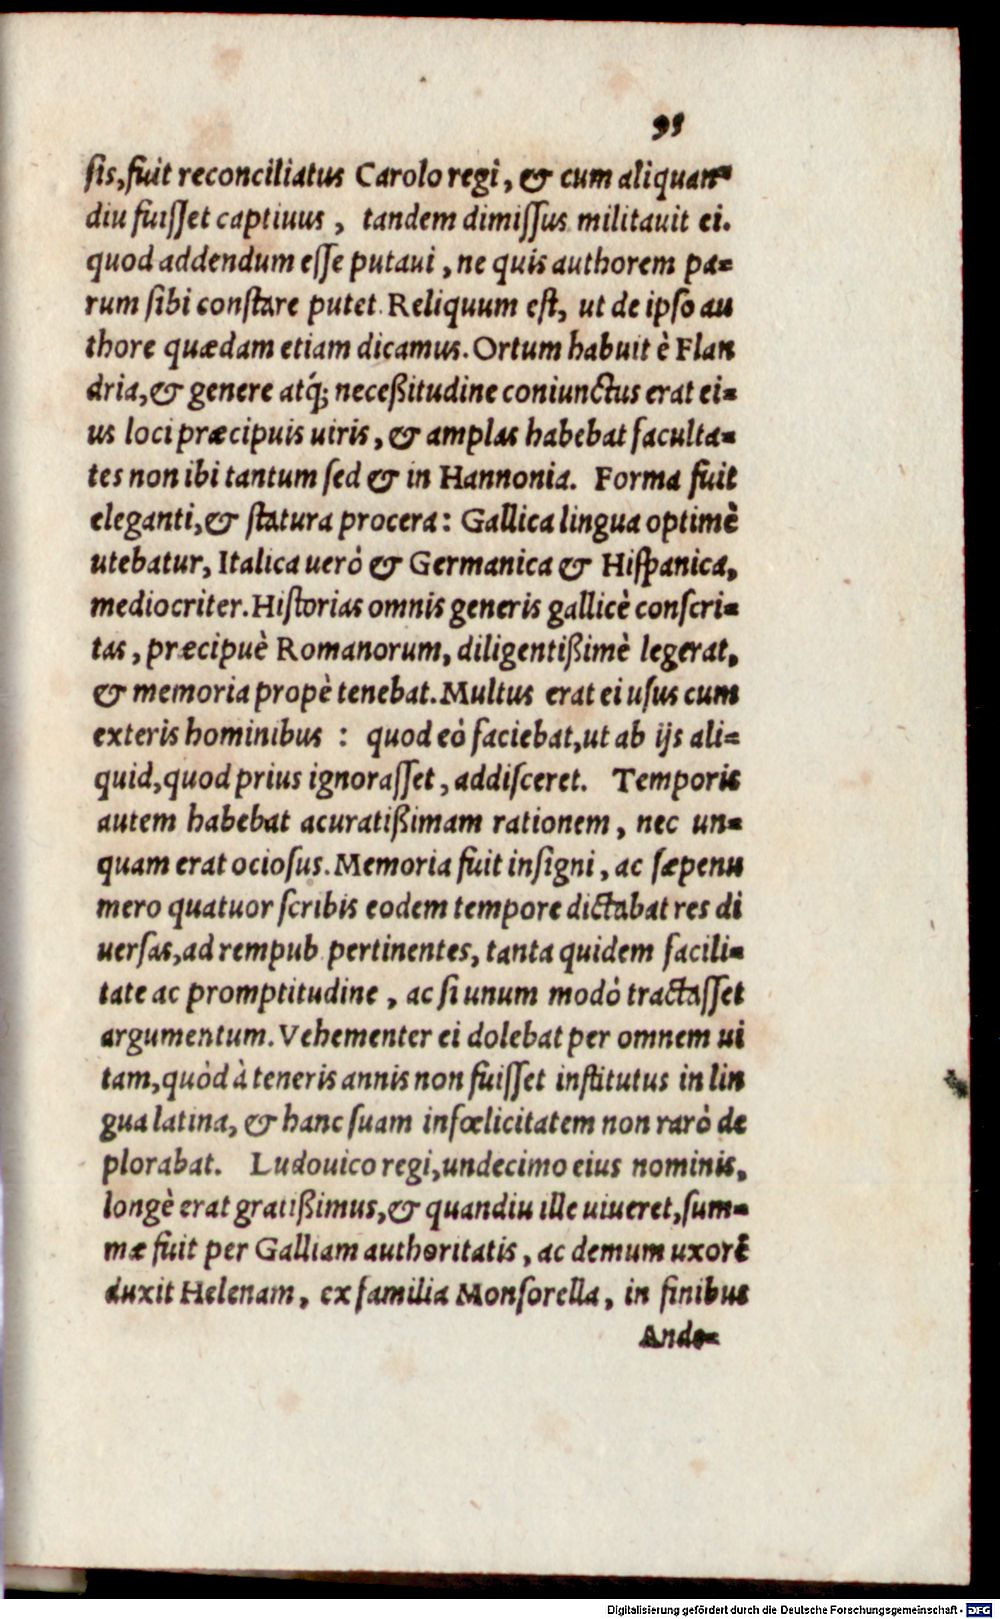 95
sis, fuit reconciliatus Carolo regi, & cum aliquan=
diu fuisset captiuus, tandem dimissus militauit ei.
quod addendum esse putaui, ne quis authorem pa=
rum sibi constare putet. Reliquum est, ut de ipso au
thore quædam etiam dicamus. Ortum habuit è Flan
dria, & genere atq́; neceßitudine coniunctus erat ei=
us loci præcipuis uiris, & amplas habebat faculta=
tes non ibi tantum sed & in Hannonia. Forma fuit
eleganti, & statura procera: Gallica lingua optimè
utebatur, Italica uerò & Germanica & Hispanica,
mediocriter. Historias omnis generis gallicè conscri=
tas, præcipuè Romanorum, diligentißimè legerat,
& memoria propè tenebat. Multus erat ei usus cum
exteris hominibus : quod eò faciebat, ut ab ijs ali=
quid, quod prius ignorasset, addisceret. Temporis
autem habebat acuratißimam rationem, nec un=
quam erat ociosus. Memoria fuit insigni, ac sæpenu
mero quatuor scribis eodem tempore dictabat res di
uersas, ad rempub. pertinentes, tanta quidem facili=
tate ac promptitudine, ac si unum modò tractasset
argumentum. Vehementer ei dolebat per omnem ui
tam, quòd à teneris annis non fuisset institutus in lin
gua latina, & hanc suam infœlicitatem non rarò de
plorabat. Ludouico regi, undecimo eius nominis,
longè erat gratißimus, & quandiu ille uiueret, sum=
mæ fuit per Galliam authoritatis, ac demum uxorē
duxit Helenam, ex familia Monsorella, in finibus
Ande=
Digitalisierung gefördert durch die Deutsche Forschungsgemeinschaft - DFG